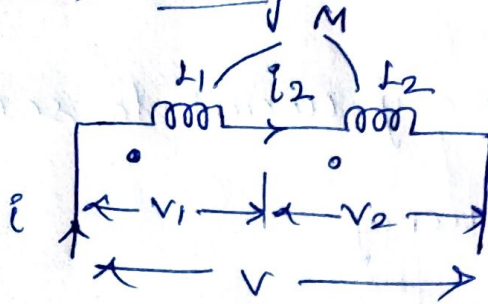 M
L1 i2 L2
i V1 V2
V